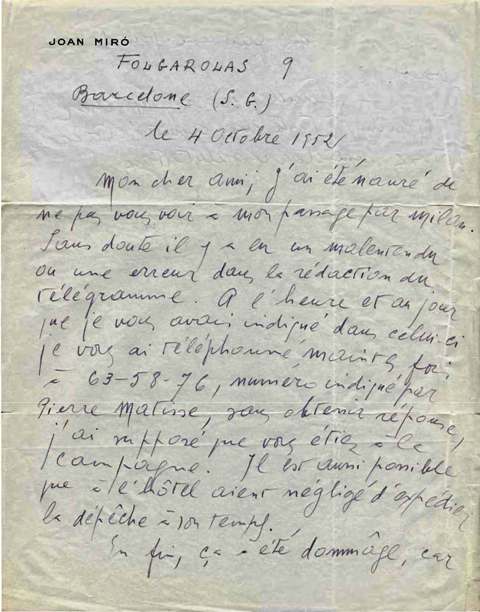 JOAN MIRÓ
FOLGAROLAS 9
Barcelone (S. G.)
le 4 Octobre 1952
Mon cher ami, j'ai été navré de
ne pas vous voir à mon passage par Milan.
Sans doute il y a eu un malentendu
ou une erreur dans la rédaction du
télégramme. A l'heure et au jour
que je vous avais indiqué dans celui-ci
je vous ai téléphonné maintes fois
à 63-58-76, numéro indiqué par
Pierre Matisse, sans obtenir réponse,
j'ai supposé que vous étiez à la
campagne. Il est aussi possible
que à l'hôtel aient négligé d'expédier
la dépêche à son temps.
En fin, ça a été dommâge, car